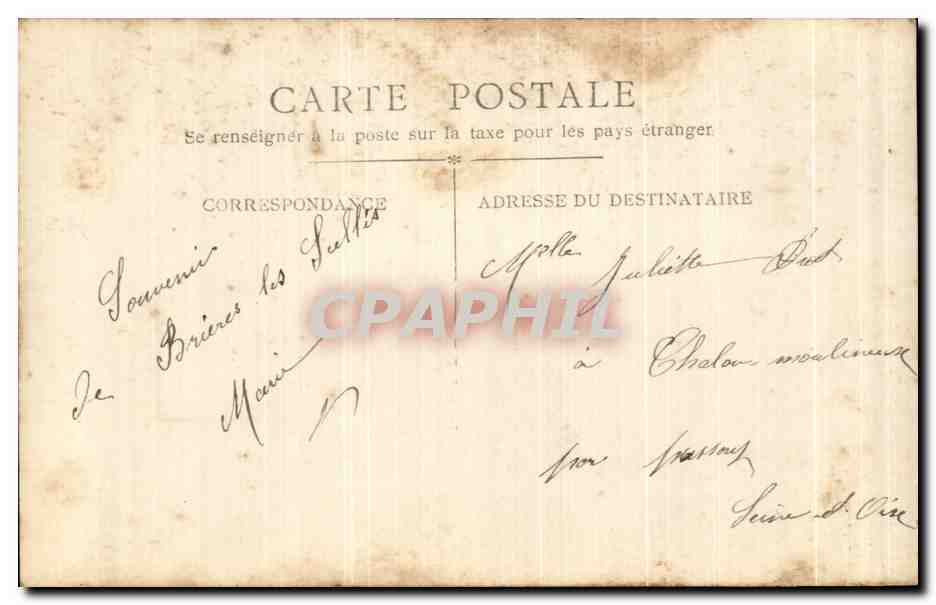 CARTE POSTALE
Se renseigner à la poste sur la taxe pour les pays étranger
CORRESPONDANCE
Souvenir
de Brières les Sellés
Marie
ADRESSE DU DESTINATAIRE
Melle Juliette
à Chalou-moulineuse
par
Seine et Oise
CPAPHIL